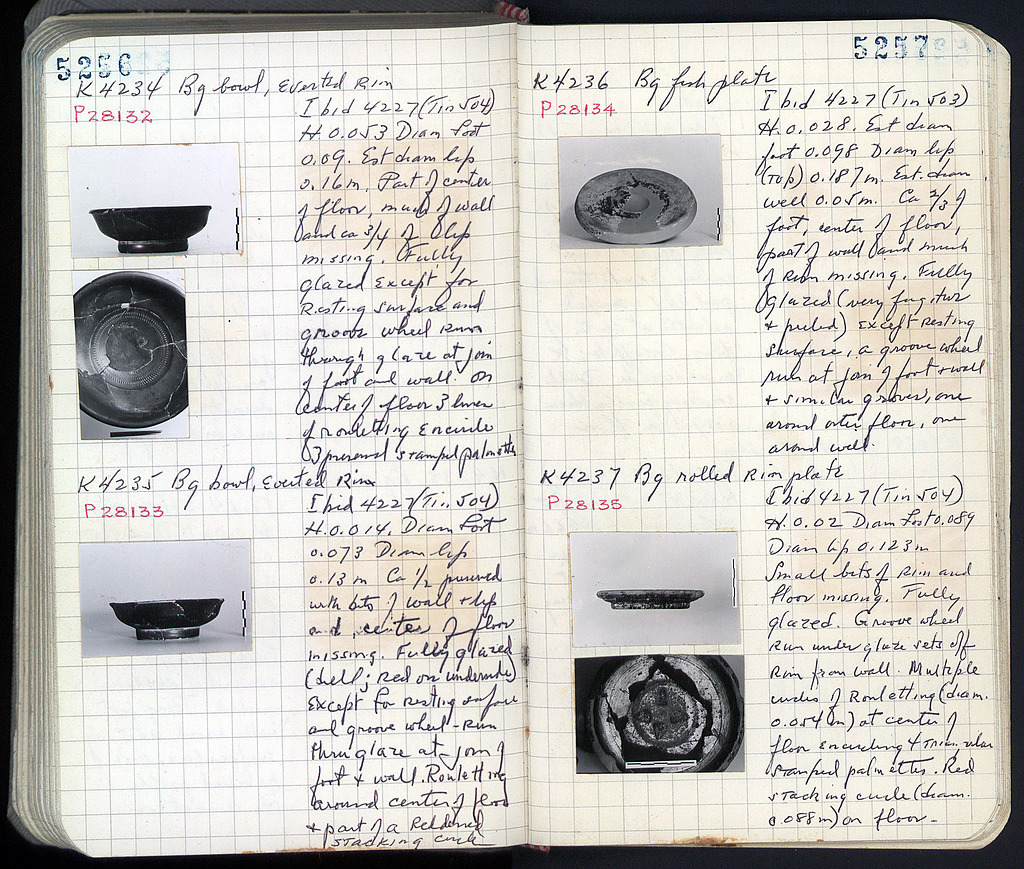 5256
K4234 Bg bowl, Everted Rim
P28132
Ibid 4227 (Tin 504)
H. 0.053 Diam foot
0.09. Est diam lip
0.16m. Part of center
of floor, much of wall
and ca 3/4 of lip
missing. Fully
glazed Except for
Resting surface and
groove wheel Run
through glaze at join
of foot and wall. On
center of floor 3 lines
of rouletting Encircle
3 preserved stamped palmettes
K4235 Bg bowl, Everted Rim
P28133
Ibid 4227 (Tin 504)
H. 0.014. Diam foot
0.073 Diam lip
0.13 m Ca 1/2 preserved
with bits of wall + lip
and center of floor
missing. Fully glazed
(dull; Red on underside)
Except for resting surface
and groove wheel-Run
thru glaze at join of
foot + wall. Rouletting
around center of floor
+ part of a Reddened
stacking circle
5257
K4236 Bg fish plate
P28134
Ibid 4227 (Tin 503)
H. 0.028. Est diam
foot 0.098 Diam lip
(top) 0.187m. Est. diam
well 0.05m. Ca 2/3 of
foot, center of floor,
part of wall and much
of Rim missing. Fully
glazed (very fugitive
+ peeled) Except Resting
surface, a groove wheel
run at join of foot + wall
+ similar grooves, one
around outer floor, one
around well.
K4237 Bg rolled Rim plate
P28135
Ibid 4227 (Tin 504)
H. 0.02 Diam foot 0.089
Diam lip 0.123m
Small bits of Rim and
floor missing. Fully
glazed. Groove wheel
Run under glaze sets off
Rim from wall. Multiple
circles of Rouletting (diam.
0.054m) at center of
floor Encircling 4 Triangular
stamped palmettes. Red
stacking circle (diam.
0.088m) on floor.